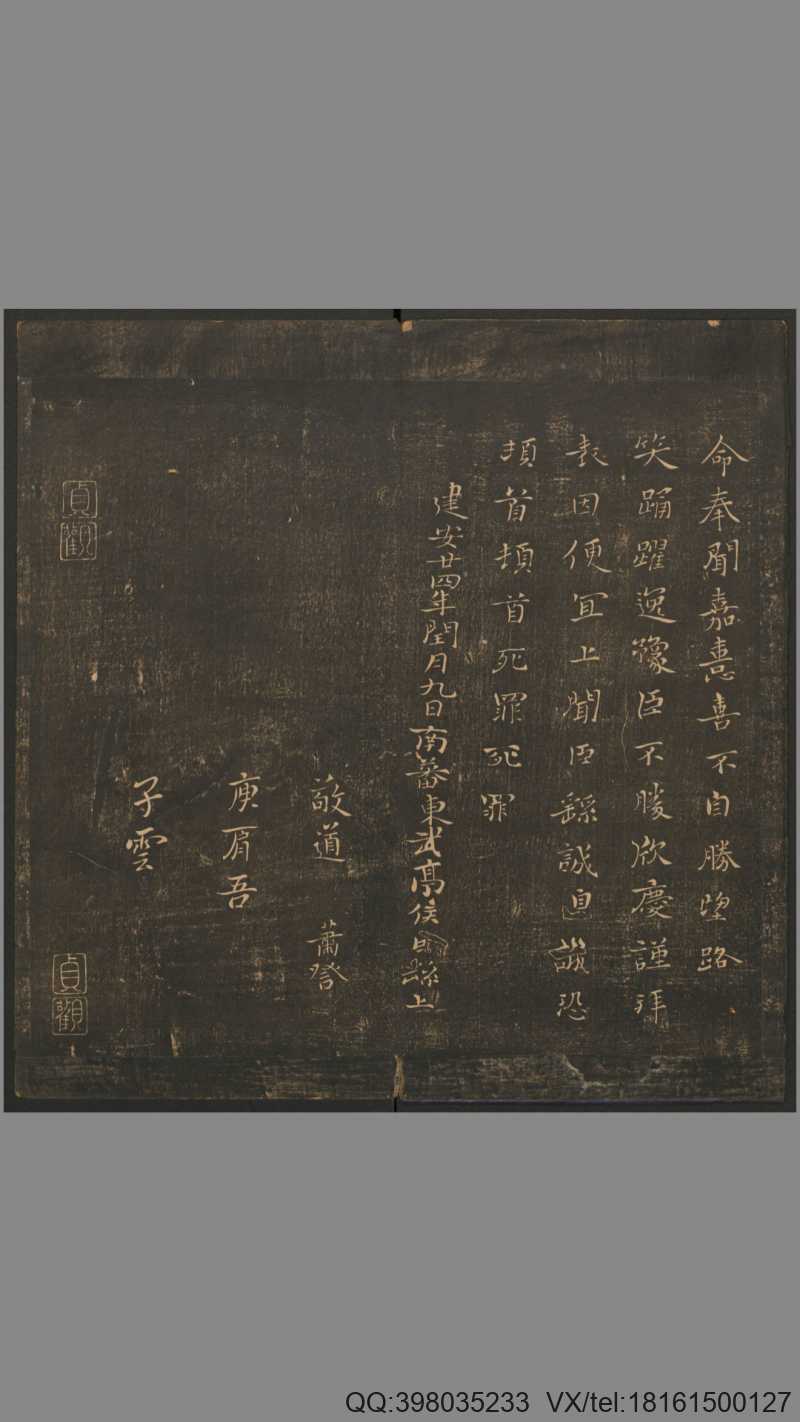 命奉聞嘉憙喜不自勝望路
笑踊躍逸豫臣不勝欣慶謹拜
表因便宜上聞臣繇誠皇誠恐
頓首頓首死罪死罪
建安廿四年閏月九日南蕃東武亭侯臣繇上
敬道
庾肩吾
子雲
貞觀
貞觀
QQ:398035233 VX/tel:18161500127